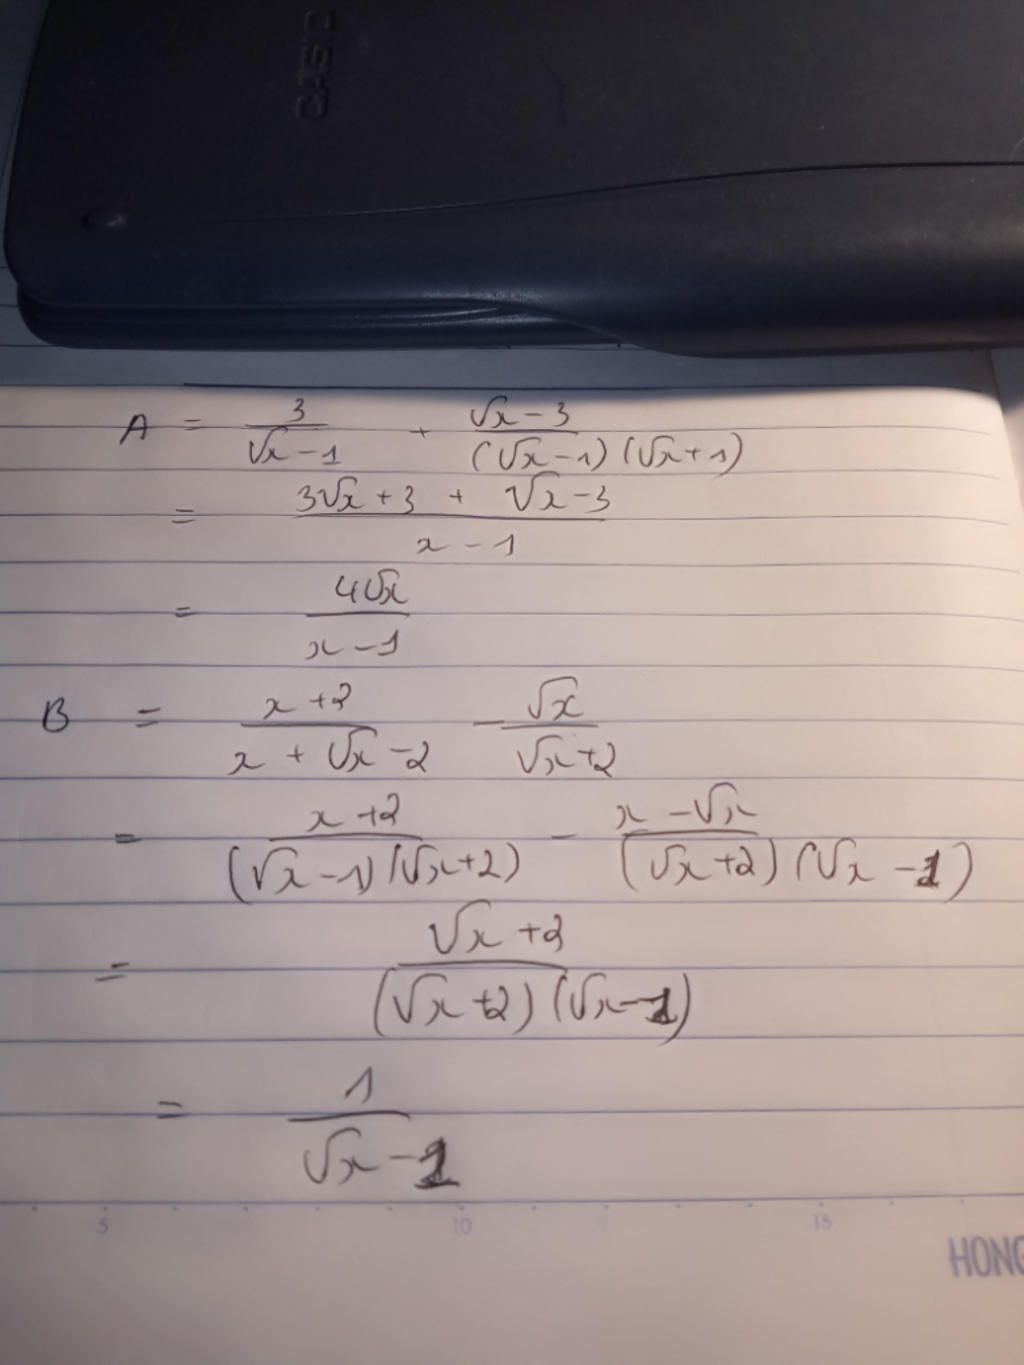 CASIO
A = 3/(√x - 1) + (√x - 3)/((√x - 1)(√x + 1))
= (3√x + 3 + √x - 3)/(x - 1)
= 4√x/(x - 1)
B = (x + 2)/(x + √x - 2) - √x/(√x + 2)
= (x + 2)/((√x - 1)(√x + 2)) - (x - √x)/((√x + 2)(√x - 1))
= (√x + 2)/((√x + 2)(√x - 1))
= 1/(√x - 1)
5 10 15
HONG